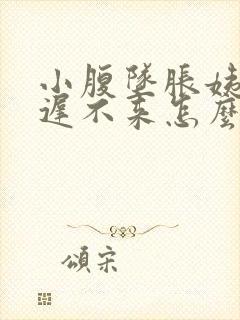 小腹墜脹姨
遲不来怎麼
頌宋